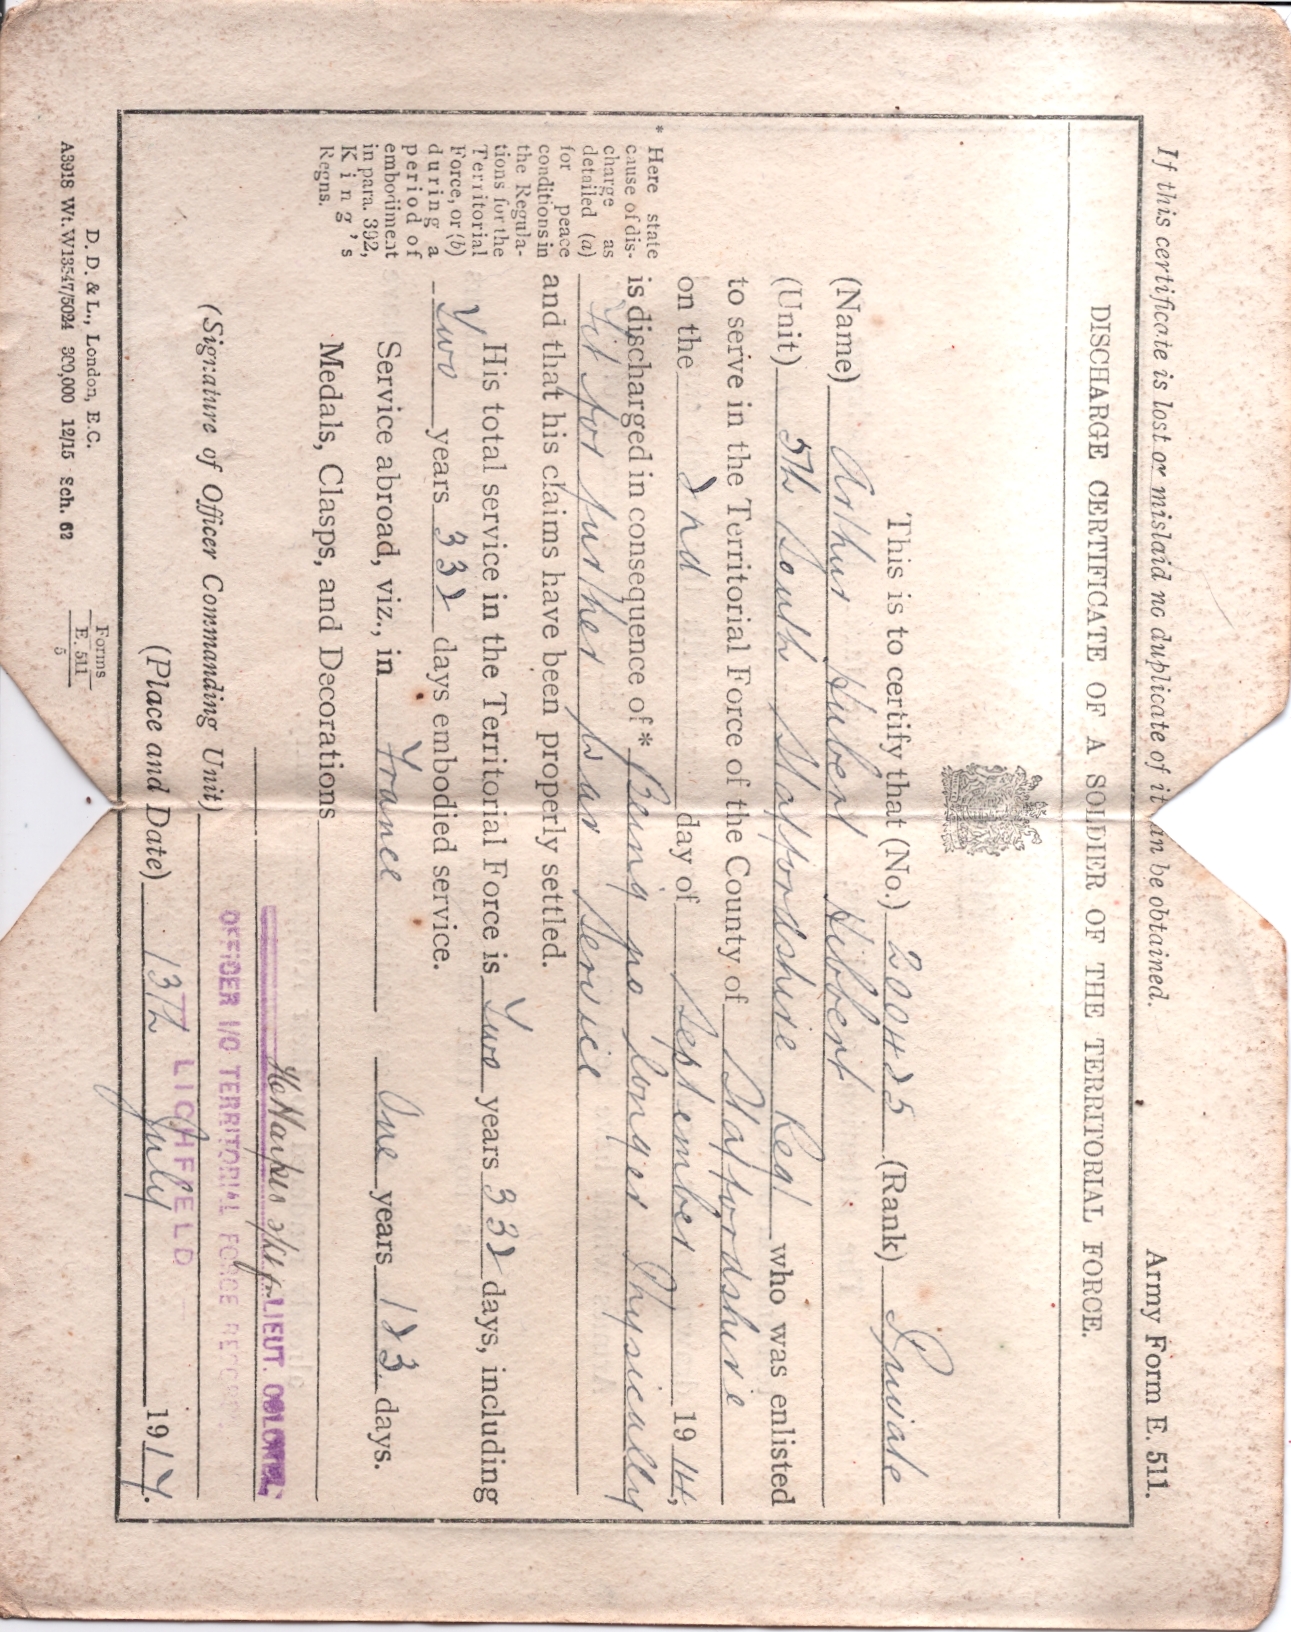 If this certificate is lost or mislaid no duplicate of it can be obtained. Army Form E. 511.
DISCHARGE CERTIFICATE OF A SOLDIER OF THE TERRITORIAL FORCE.
This is to certify that (No.) 200425 (Rank) Private
(Name) Arthur Hubert Hibbert
(Unit) 5th South Staffordshire Regt who was enlisted
to serve in the Territorial Force of the County of Staffordshire
on the 2nd day of September 1914,
is discharged in consequence of* Being no longer Physically
fit for further War Service
and that his claims have been properly settled.
His total service in the Territorial Force is Two years 332 days, including
Two years 332 days embodied service.
Service abroad, viz., in France One years 123 days.
Medals, Clasps, and Decorations
LIEUT. COLONEL
(Signature of Officer Commanding Unit) OFFICER I/C TERRITORIAL FORCE RECORDS
LICHFIELD
(Place and Date) 13th July 1917.
* Here state
cause of dis-
charge as
detailed (a)
for peace
conditions in
the Regula-
tions for the
Territorial
Force, or (b)
during a
period of
embodiment
in para. 392,
King's
Regns.
D. D. & L., London, E.C.
A3918 Wt. W13547/5024 300,000 12/15 Sch. 62
Forms
E. 511
5